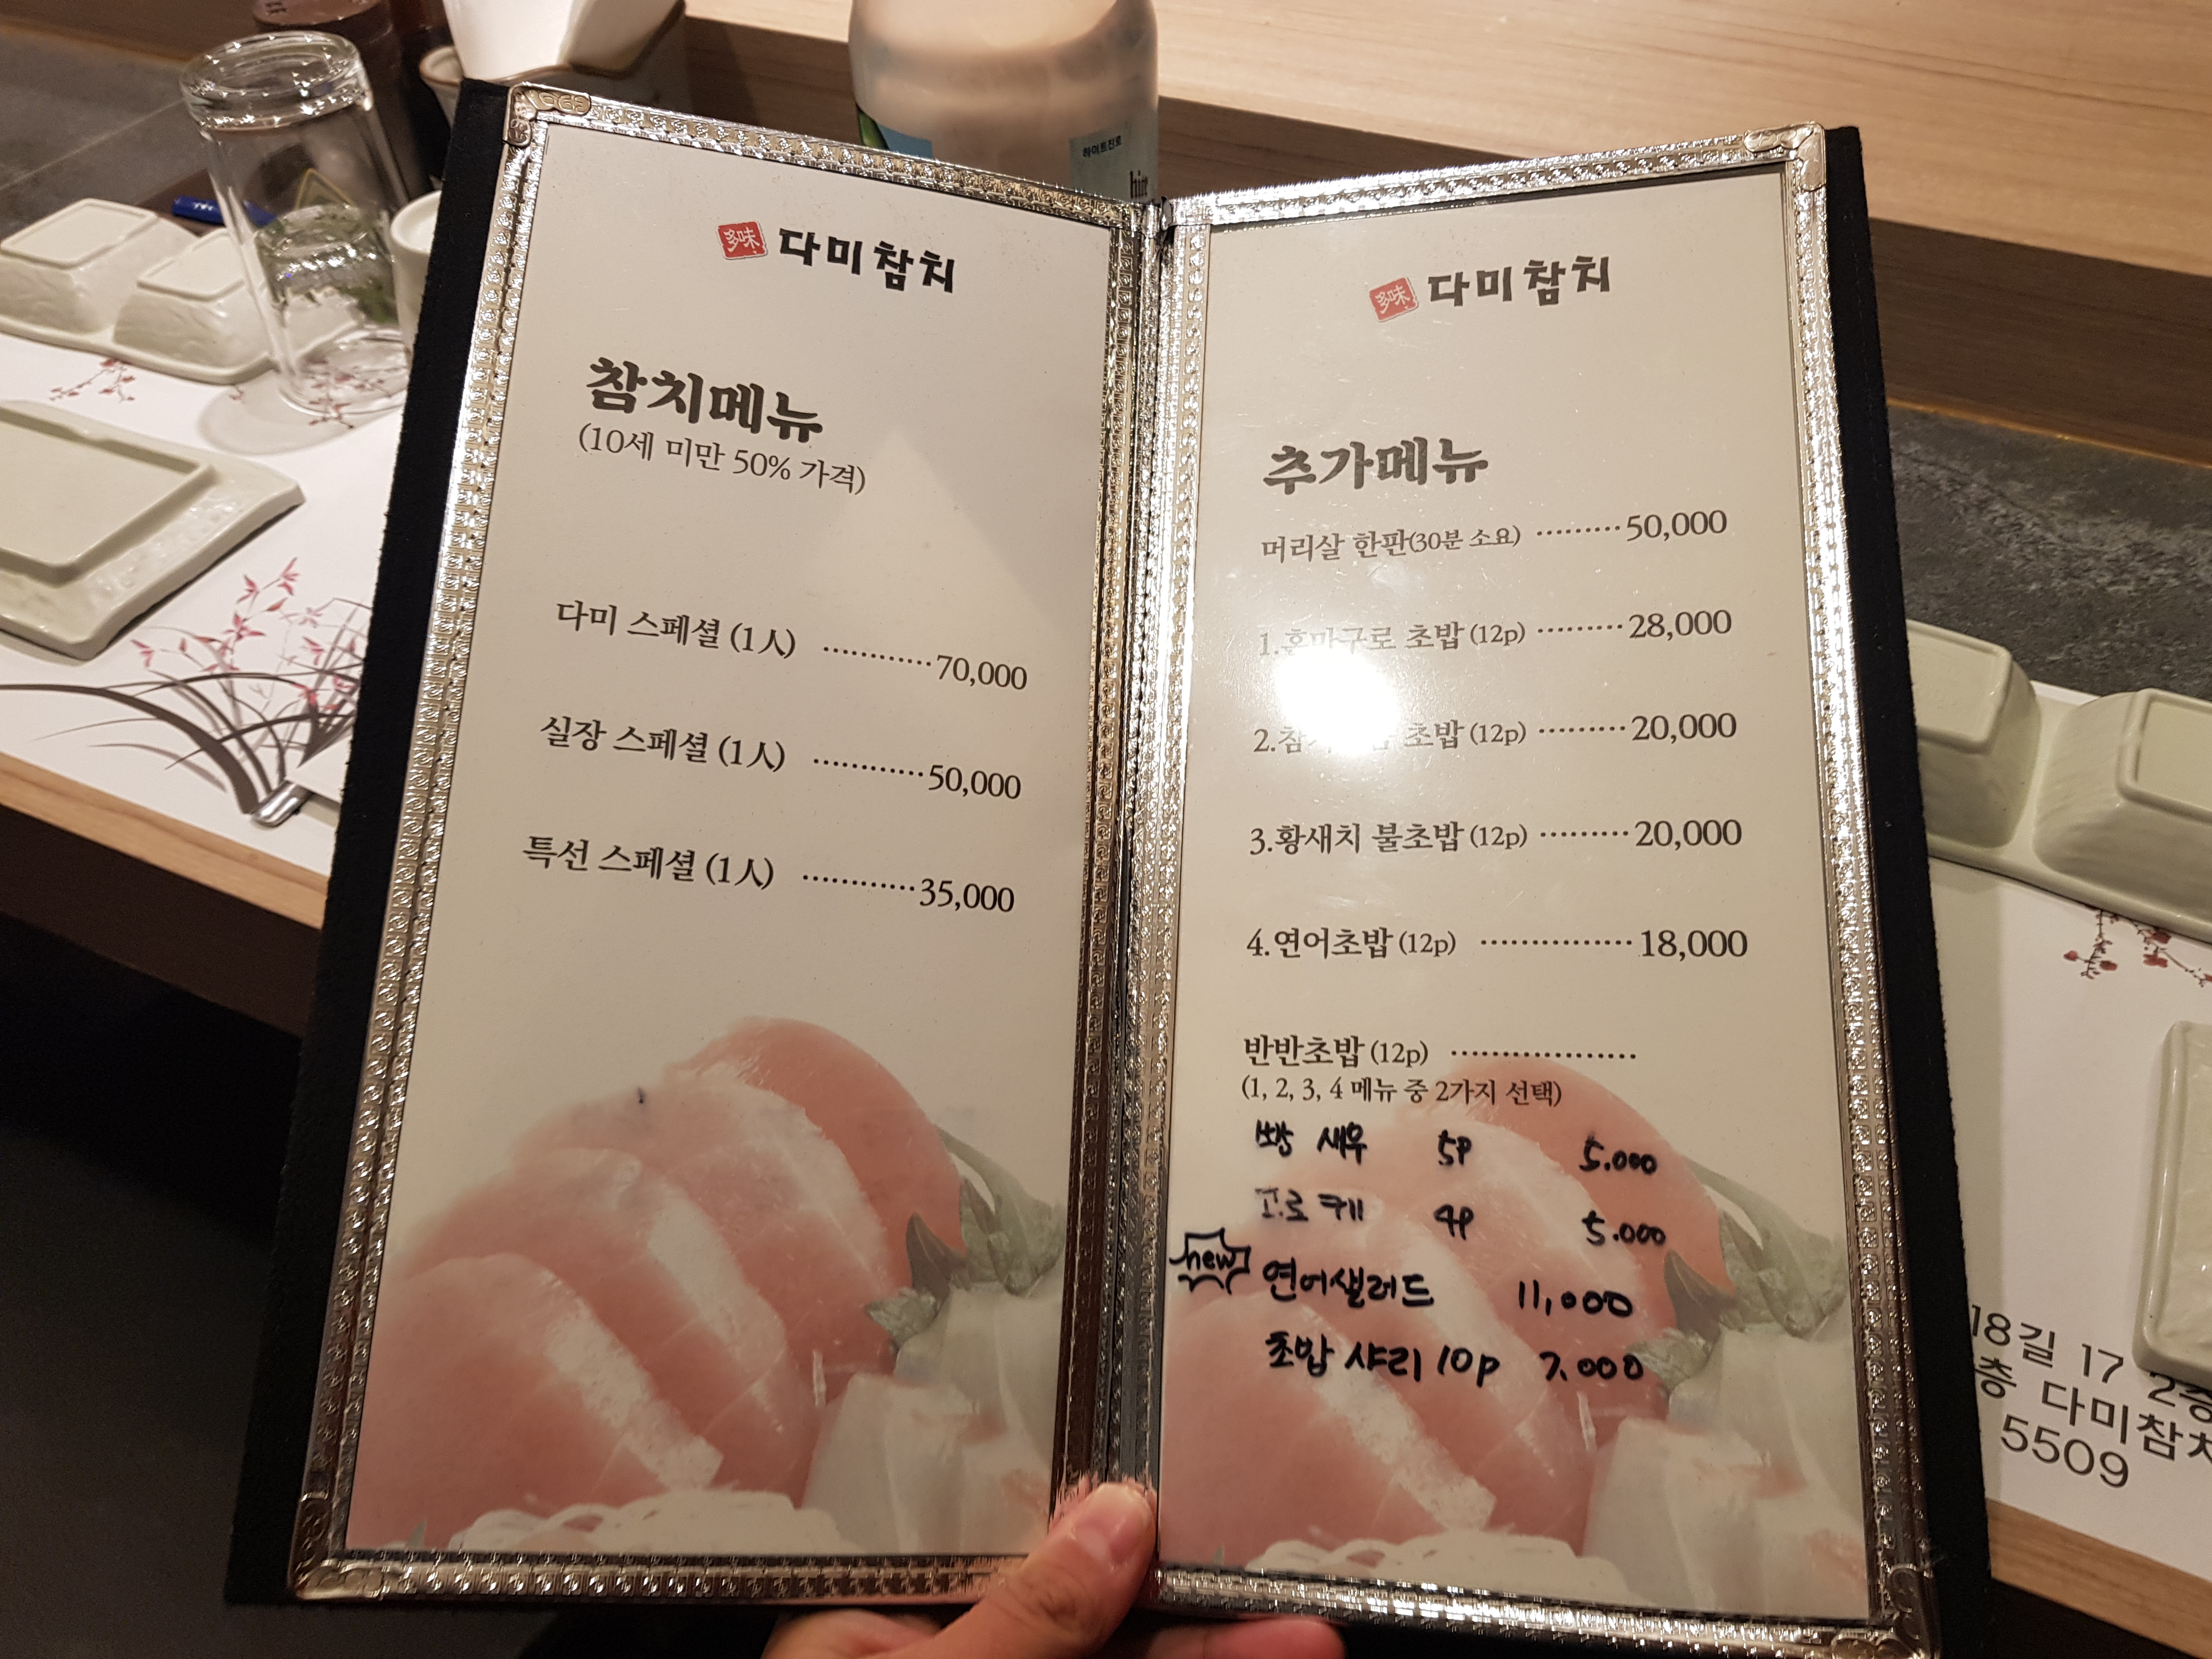 多味 다미참치
참치메뉴
(10세 미만 50% 가격)
다미 스페셜 (1人) ············70,000
실장 스페셜 (1人) ············50,000
특선 스페셜 (1人) ············35,000
多味 다미참치
추가메뉴
머리살 한판(30분 소요) ·········50,000
1.혼마구로 초밥 (12p) ·········28,000
2. 초밥 (12p) ·········20,000
3.황새치 불초밥 (12p) ·········20,000
4.연어초밥 (12p) ···············18,000
반반초밥 (12p) ··················
(1, 2, 3, 4 메뉴 중 2가지 선택)
빵 새우 5P 5.000
고로케 4P 5.000
new 연어샐러드 11,000
초밥 샤리 10p 7.000
하이트진로
18길 17 2층
층 다미참치
5509